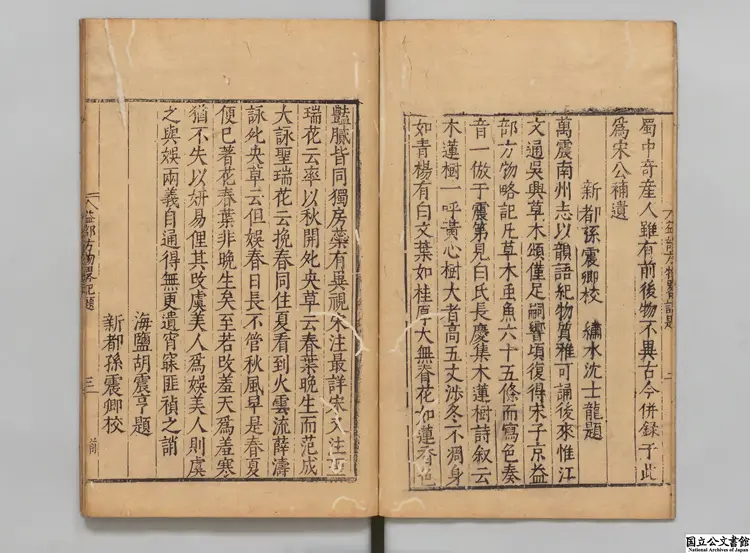 蜀中奇産人雖有前後物不異古今併録于此
爲宋公補遺
新都孫震卿校　繡水沈士龍題
萬震南州志以韻語紀物質雅可誦後來惟江
文通吳興草木頌僅足嗣響頃復得宋子京益
部方物略記凡草木虫魚六十五條而寫色奏
音一倣于震第見白氏長慶集木蓮樹詩叙云
木蓮樹一呼黃心樹大者高五丈渉冬不凋身
如青楊有白文葉如桂厚大無脊花如蓮香色
豔膩皆同獨房蘂有異視宋注最詳宋又注
瑞花云率以秋開央草云春葉晚生而范成
大詠聖瑞花云挽春同住夏看到火雲流薛濤
詠央草云但娛春日長不管秋風早是春夏
便已著花春葉非晚生矣至若改羞天爲羞寒
猶不失以妍易俚其改虞美人爲娛美人則虞
之與娛兩義自通得無更遺宵寐匪禎之誚
海鹽胡震亨題
新都孫震卿校
益部方物畧記題
三
国立公文書館
National Archives of Japan